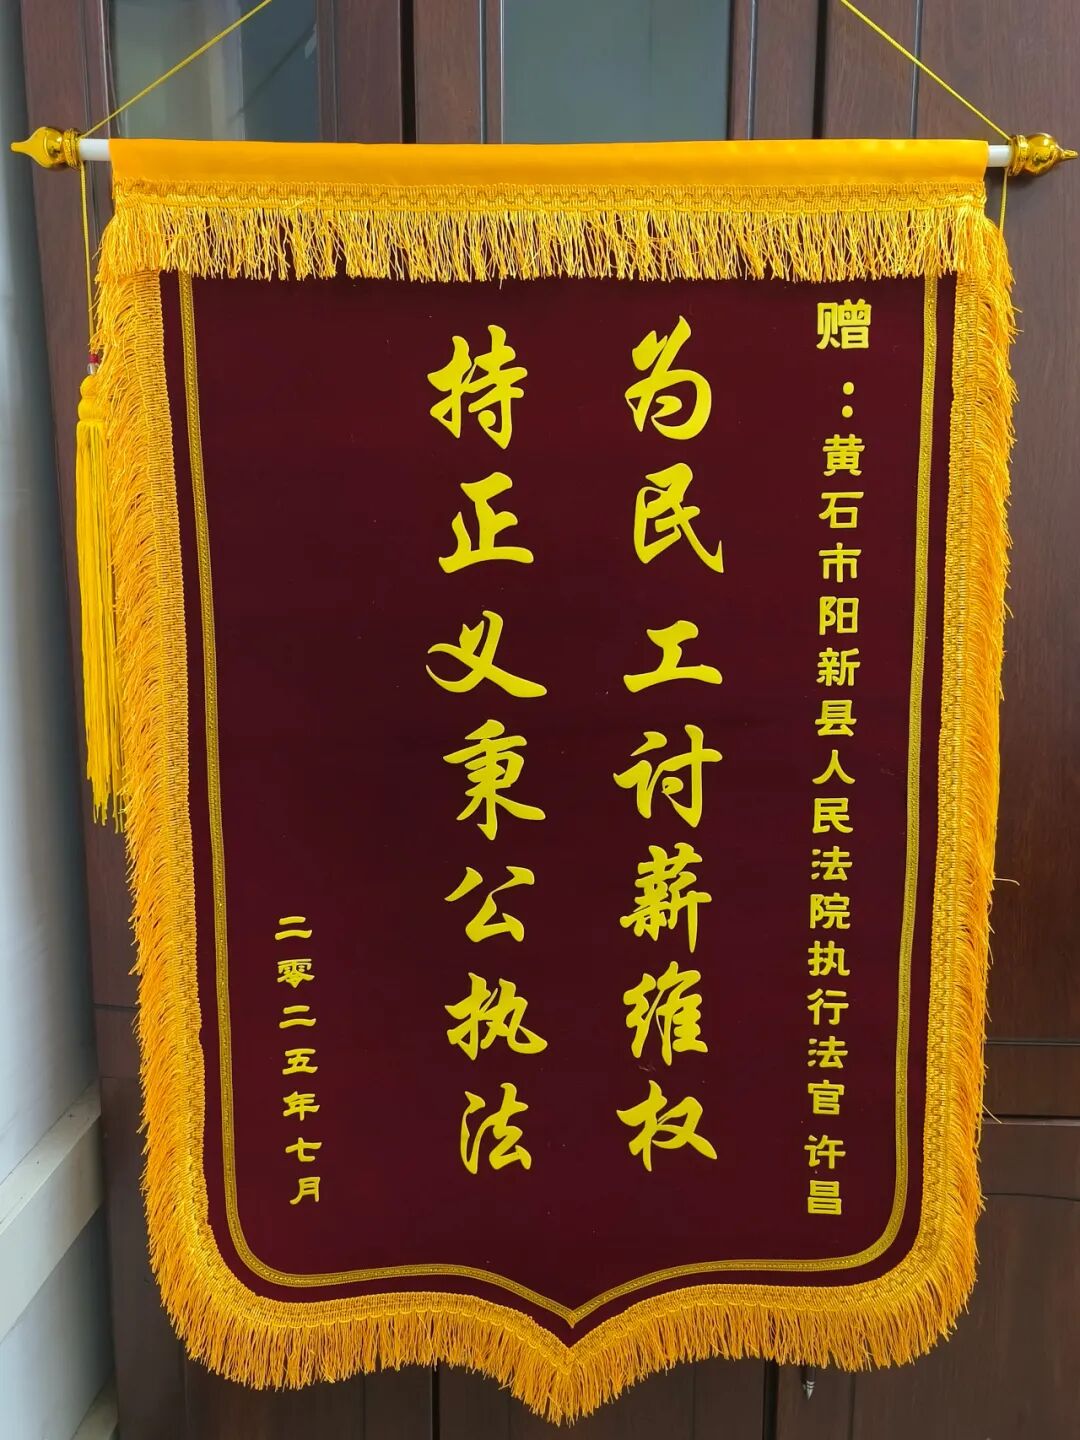 赠：黄石市阳新县人民法院执行法官 许昌
为民工讨薪维权
持正义秉公执法
二零二五年七月